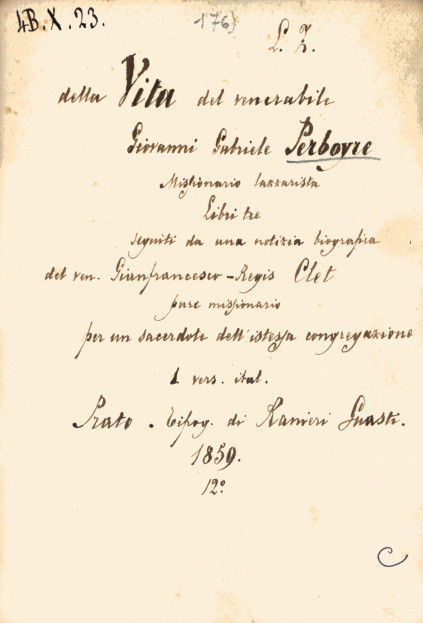 4B.X.23.
176)
L. Z.
della Vita del venerabile
Giovanni Gabriele Perboyre
Missionario lazzarista
Libri tre
seguiti da una notizia biografica
del ven. Gianfrancesco-Regis Clet
pure missionario
per un sacerdote dell'istessa congregazione
1 vers. ital.
Prato. Tipog. di Ranieri Guasti.
1859.
12º
C